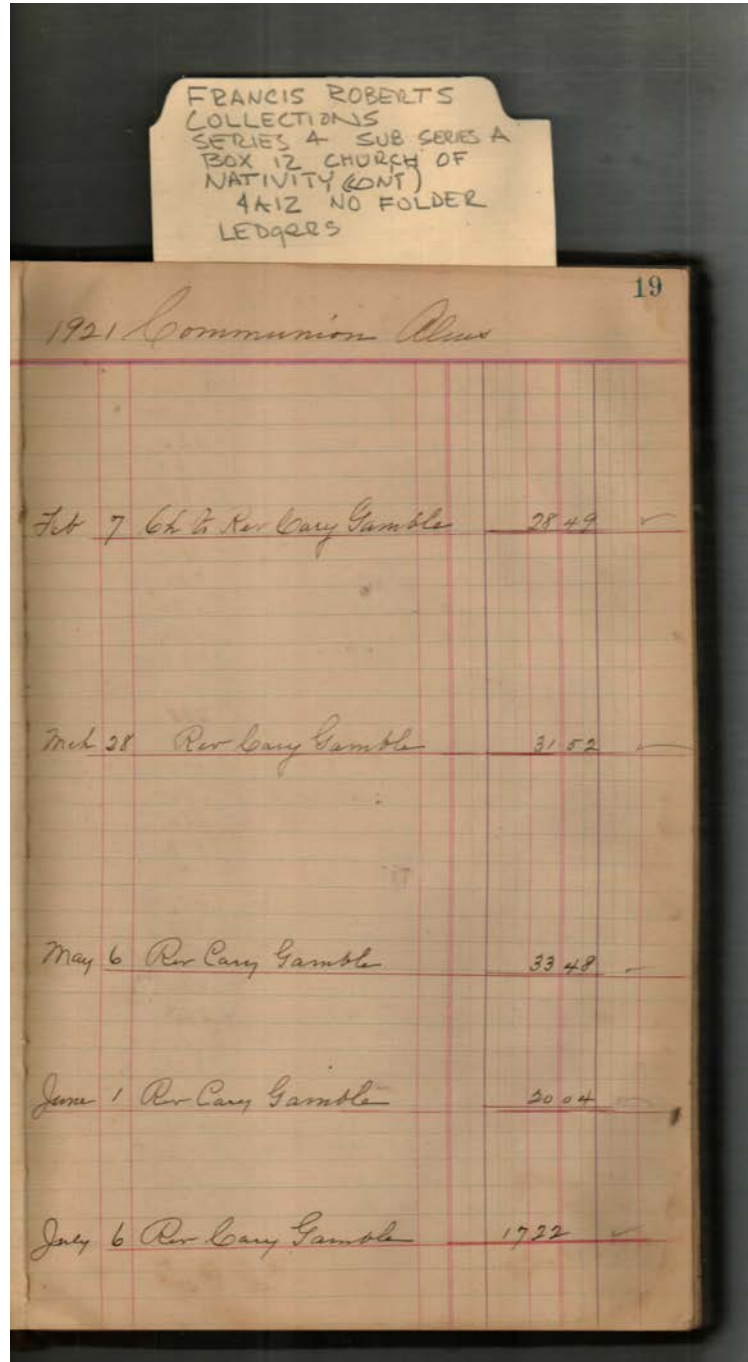 FRANCIS ROBERTS
COLLECTIONS
SERIES 4 SUB SERIES A
BOX 12 CHURCH OF
NATIVITY (CONT)
4A12 NO FOLDER
LEDgeRS
19
1921 Communion Alms
Feb 7 Ch to Rev Cary Gamble 28 49 ✓
Mch 28 Rev Cary Gamble 31 52
May 6 Rev Cary Gamble 33 48
June 1 Rev Cary Gamble 20 04
July 6 Rev Cary Gamble 1722 ✓